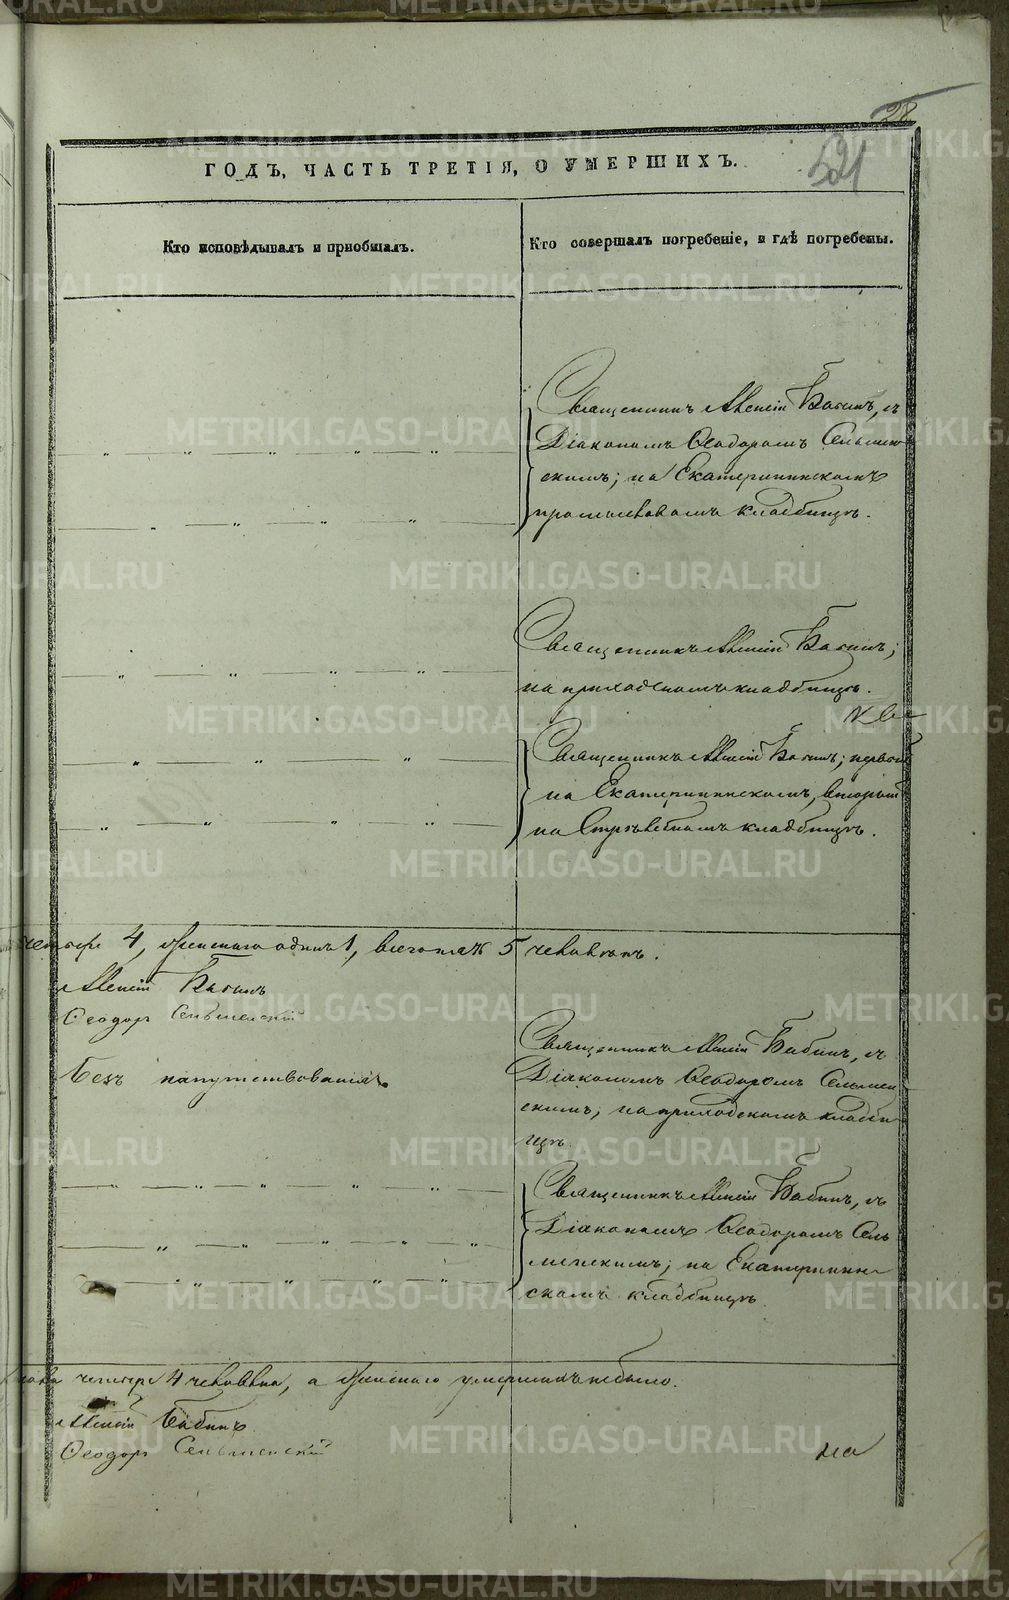 28
521
ГОДЪ, ЧАСТЬ ТРЕТІЯ, О УМЕРШИХЪ.
Кто исповѣдывалъ и пріобщалъ.
Кто совершалъ погребеніе, и гдѣ погребены.
Священникъ Алексій Бабинъ, съ
Діакономъ Ѳеодоромъ Сельмен-
скимъ; на Екатерининскомъ
промысловомъ кладбищѣ.
Священникъ Алексій Бабинъ;
на приходскомъ кладбищѣ.
Священникъ Алексій Бабинъ; первый
на Екатерининскомъ, вторый
на кладбищѣ.
четыре 4, женскаго одинъ 1, всего 5 человѣкъ.
Алексій Бабинъ
Ѳеодоръ Сельменскій
Безъ напутствованія
Священникъ Алексій Бабинъ, съ
Діакономъ Ѳеодоромъ Сельмен-
скимъ, на приходскомъ кладби-
щѣ.
Священникъ Алексій Бабинъ, съ
Діакономъ Ѳеодоромъ Сель-
менскимъ; на Екатеринин-
скомъ кладбищѣ
четыре 4 человѣка, а женскаго умершихъ небыло.
Алексій Бабинъ
Ѳеодоръ Сельменскій
на
METRIKI.GASO-URAL.RU